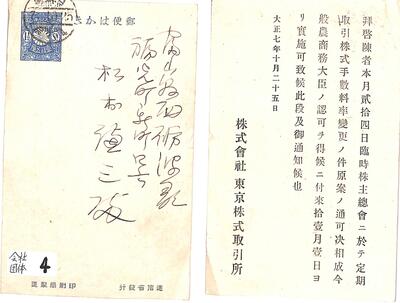 郵便はかき
富山縣西礪波郡
福光町
松村
三
殿
逓信省発行
印刷局製造
会社
団体
4
拜啓陳者本月貳拾四日臨時株主總會ニ於テ定期
取引株式手數料率變更ノ件原案ノ通可決相成今
般農商務大臣ノ認可ヲ得候ニ付來拾壹月壹日ヨ
リ實施可致候此段及御通知候也
大正七年十月二十五日
株式會社 東京株式取引所